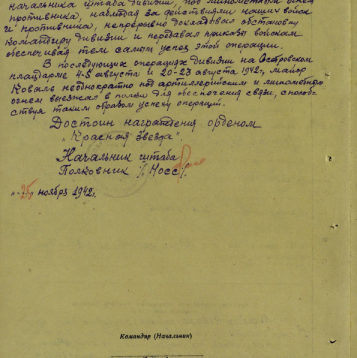 начальника штаба дивизии, под минометным огнем
противника, наблюдая за действиями наших войск
и противника, непрерывно докладывал обстановку
командиру дивизии и передавал приказы войскам
обеспечивая тем самым успех этой операции.
В последующих операциях дивизии на Островском
плацдарме 4-8 августа и 20-23 августа 1942г, майор
Коваль неоднократно под артиллерийским и минометным
огнем выезжал в полки для обеспечения связи, способ-
ствуя таким образом успеху операций.
Достоин награждения орденом
"Красная звезда".
Начальник штаба
Полковник /Носс/
"25" ноября 1942г.
Командир (Начальник)